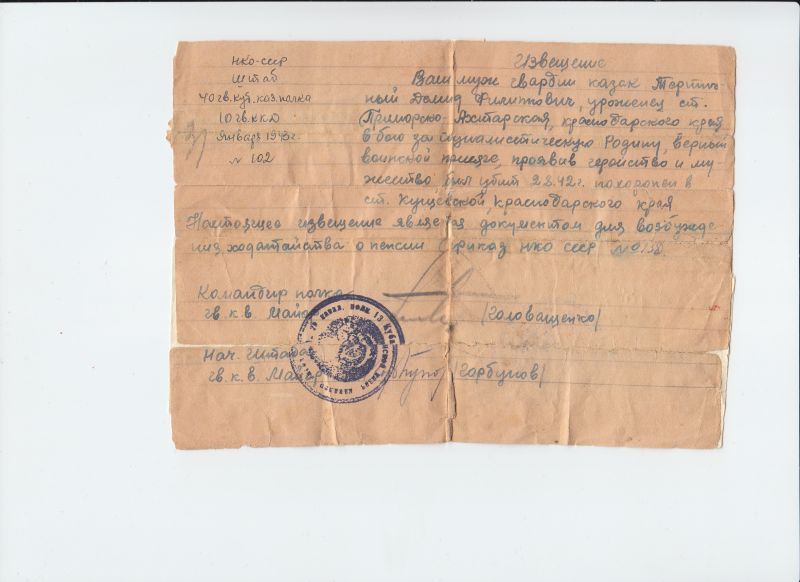 НКО-СССР
Штаб
40 гв. куб. каз. полка
10 гв. ККД
Январь 1943г.
N 102
Извещение
Ваш муж гвардии казак
ный Демид Филиппович, уроженец ст.
Приморско-Ахтарская, краснодарского края
в бою за социалистическую Родину, верный
воинской присяге, проявив геройство и му-
жество был убит 2.8.42г. похоронен в
ст. Кущевской, Краснодарского края
Настоящее извещение является документом для возбужде-
ния ходатайства о пенсии (приказ НКО СССР №
Командир полка
гв. к. в. Майо
/Головащенко/
Нач. штаба
гв. к. в. Майор
/Горбунов/
кавал. полк 13 Куба